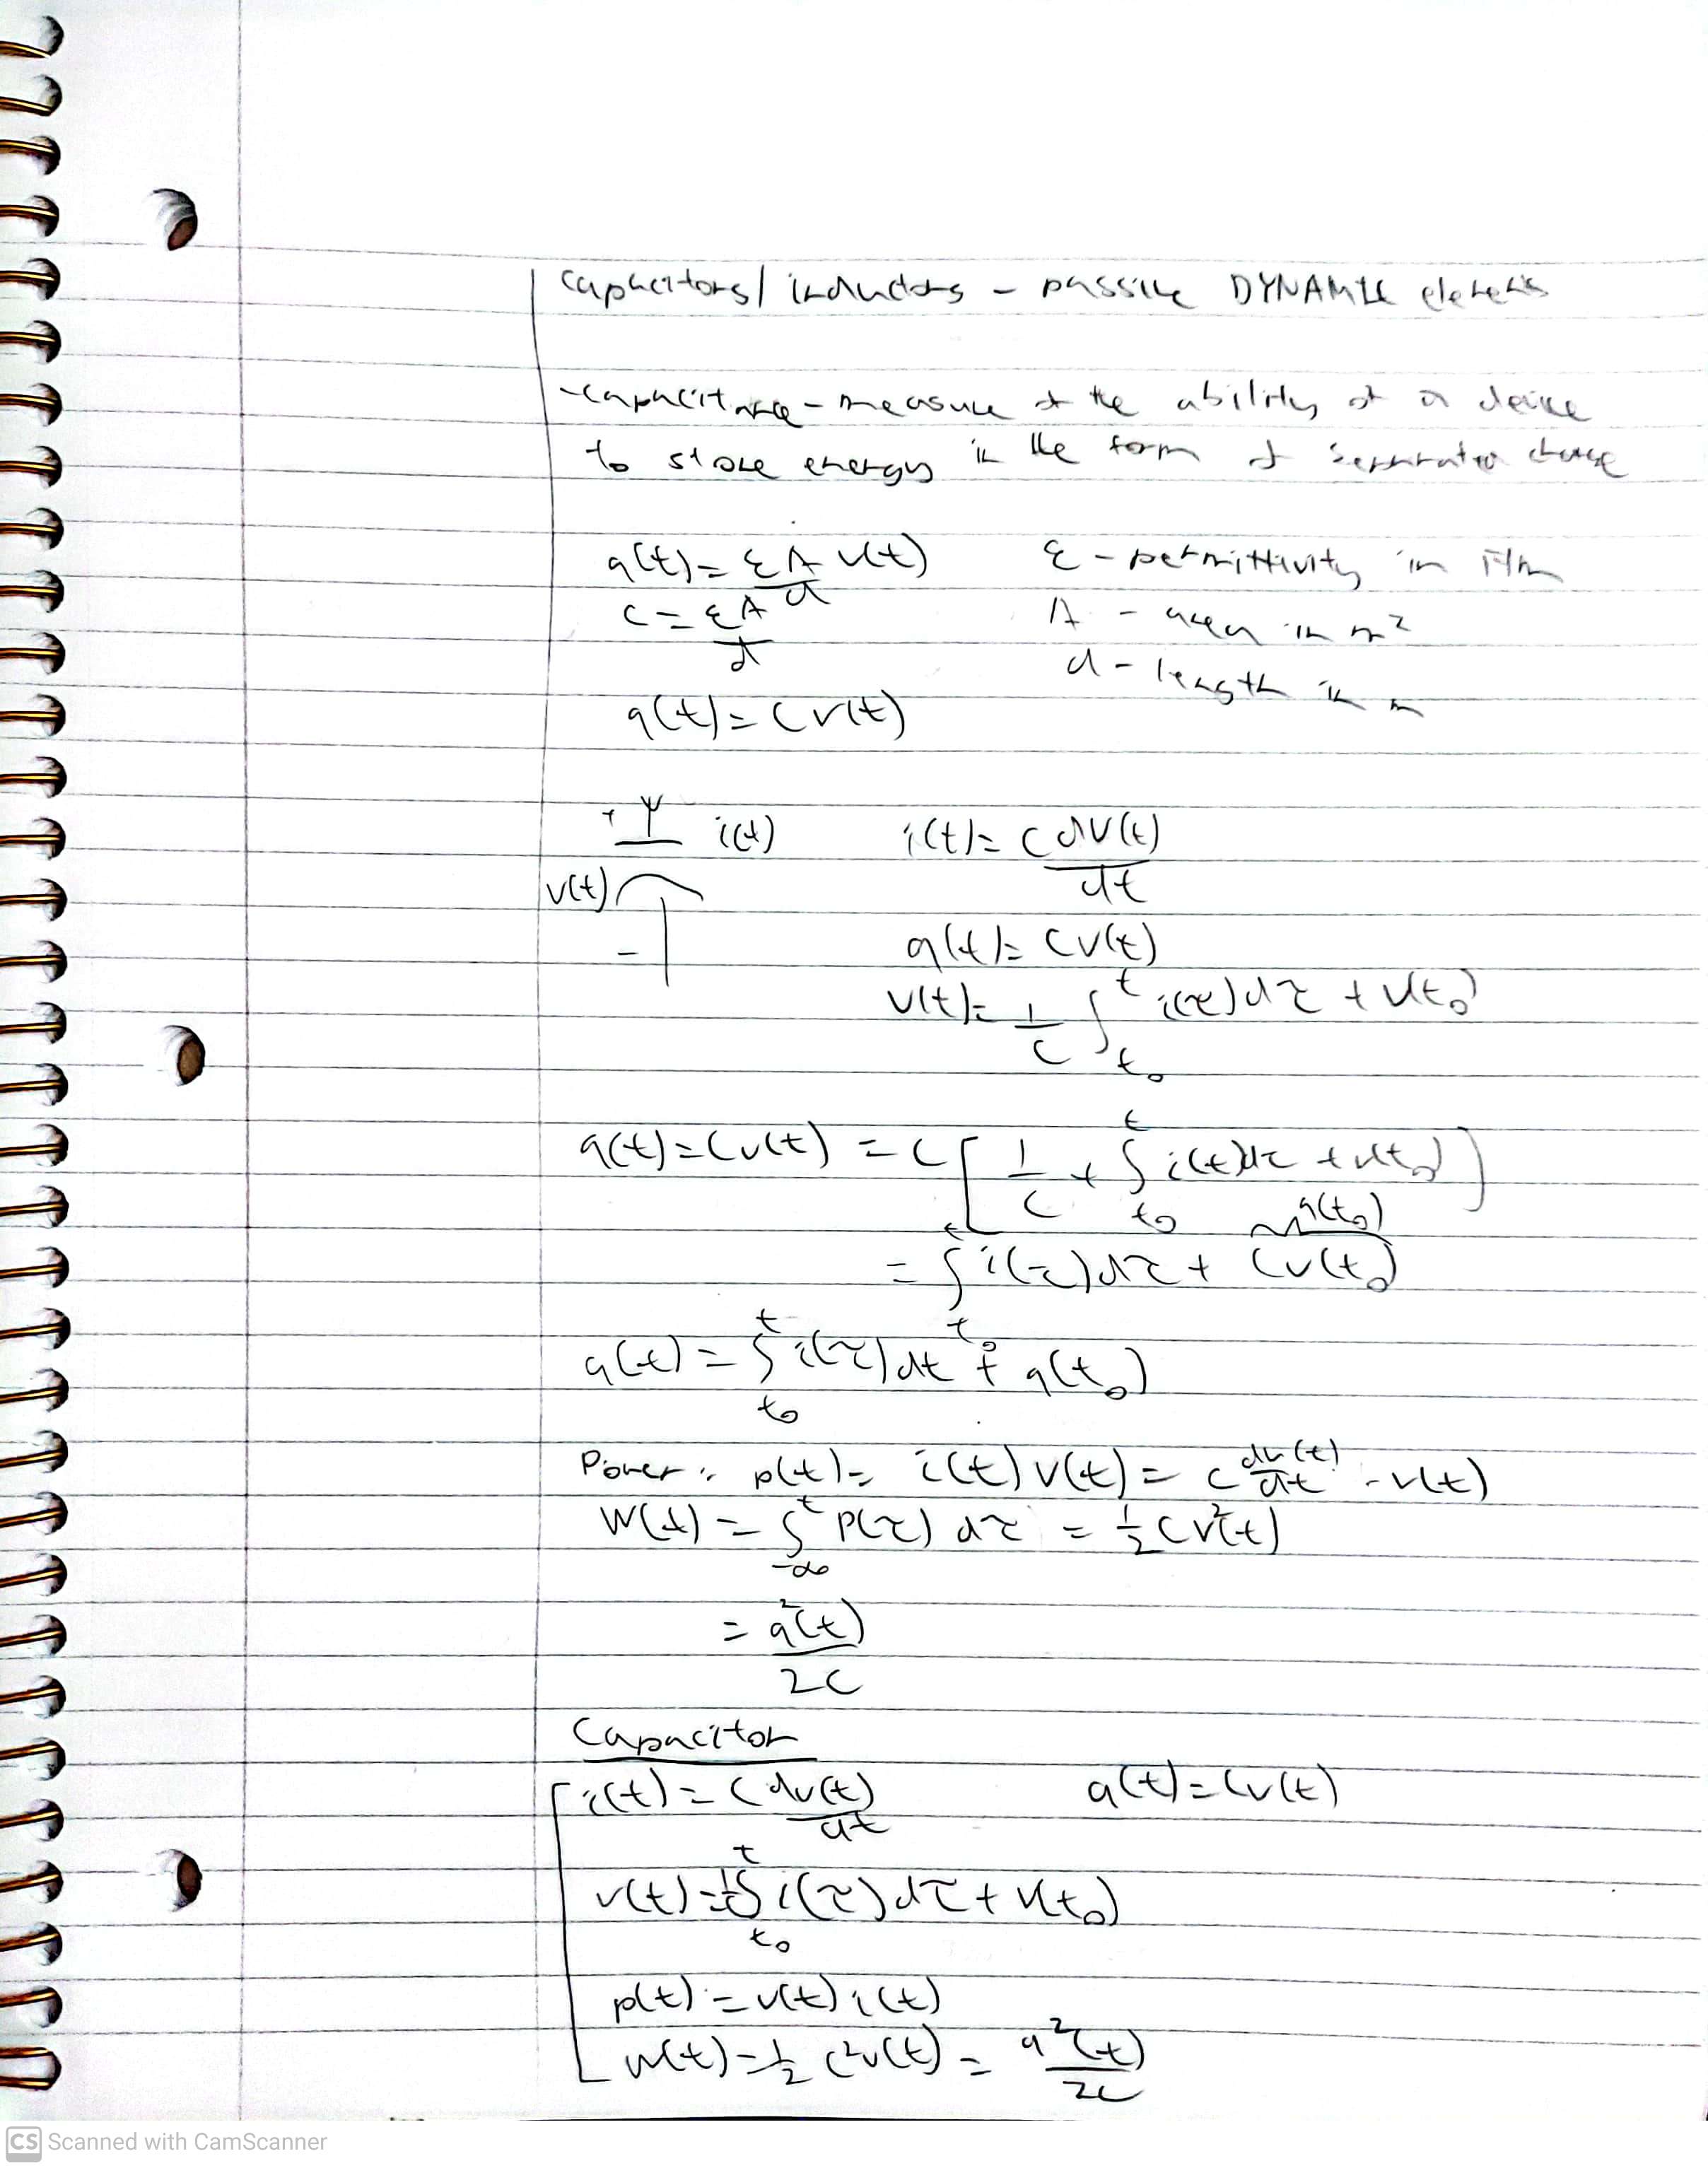 capacitors/ inductors - passive DYNAMIC elements
-capacitance - measure of the ability of a device
to store energy in the form of separated charge
q(t) = εA/d v(t)    ε - permittivity in F/m
C = εA/d    A - area in m²
d - length in m
q(t) = Cv(t)
+ i(t)    i(t) = C dv(t)/dt
v(t)
-    q(t) = Cv(t)
v(t) = 1/C ∫_{t₀}^{t} i(τ)dτ + v(t₀)
q(t) = Cv(t) = C[1/C + ∫_{t₀}^{t} i(t)dτ + v(t₀)]
q(t₀)
= ∫_{t₀}^{t} i(τ)dτ + Cv(t₀)
q(t) = ∫_{t₀}^{t} i(τ)dt + q(t₀)
Power: p(t) = i(t)v(t) = C dv(t)/dt · v(t)
W(t) = ∫_{-∞}^{t} P(τ) dτ = ½Cv²(t)
= q²(t)/2C
Capacitor
i(t) = C dv(t)/dt    q(t) = Cv(t)
v(t) = 1/C ∫_{t₀}^{t} i(τ)dτ + v(t₀)
p(t) = v(t)i(t)
w(t) = ½ C²v(t) = q²(t)/2C
CS Scanned with CamScanner